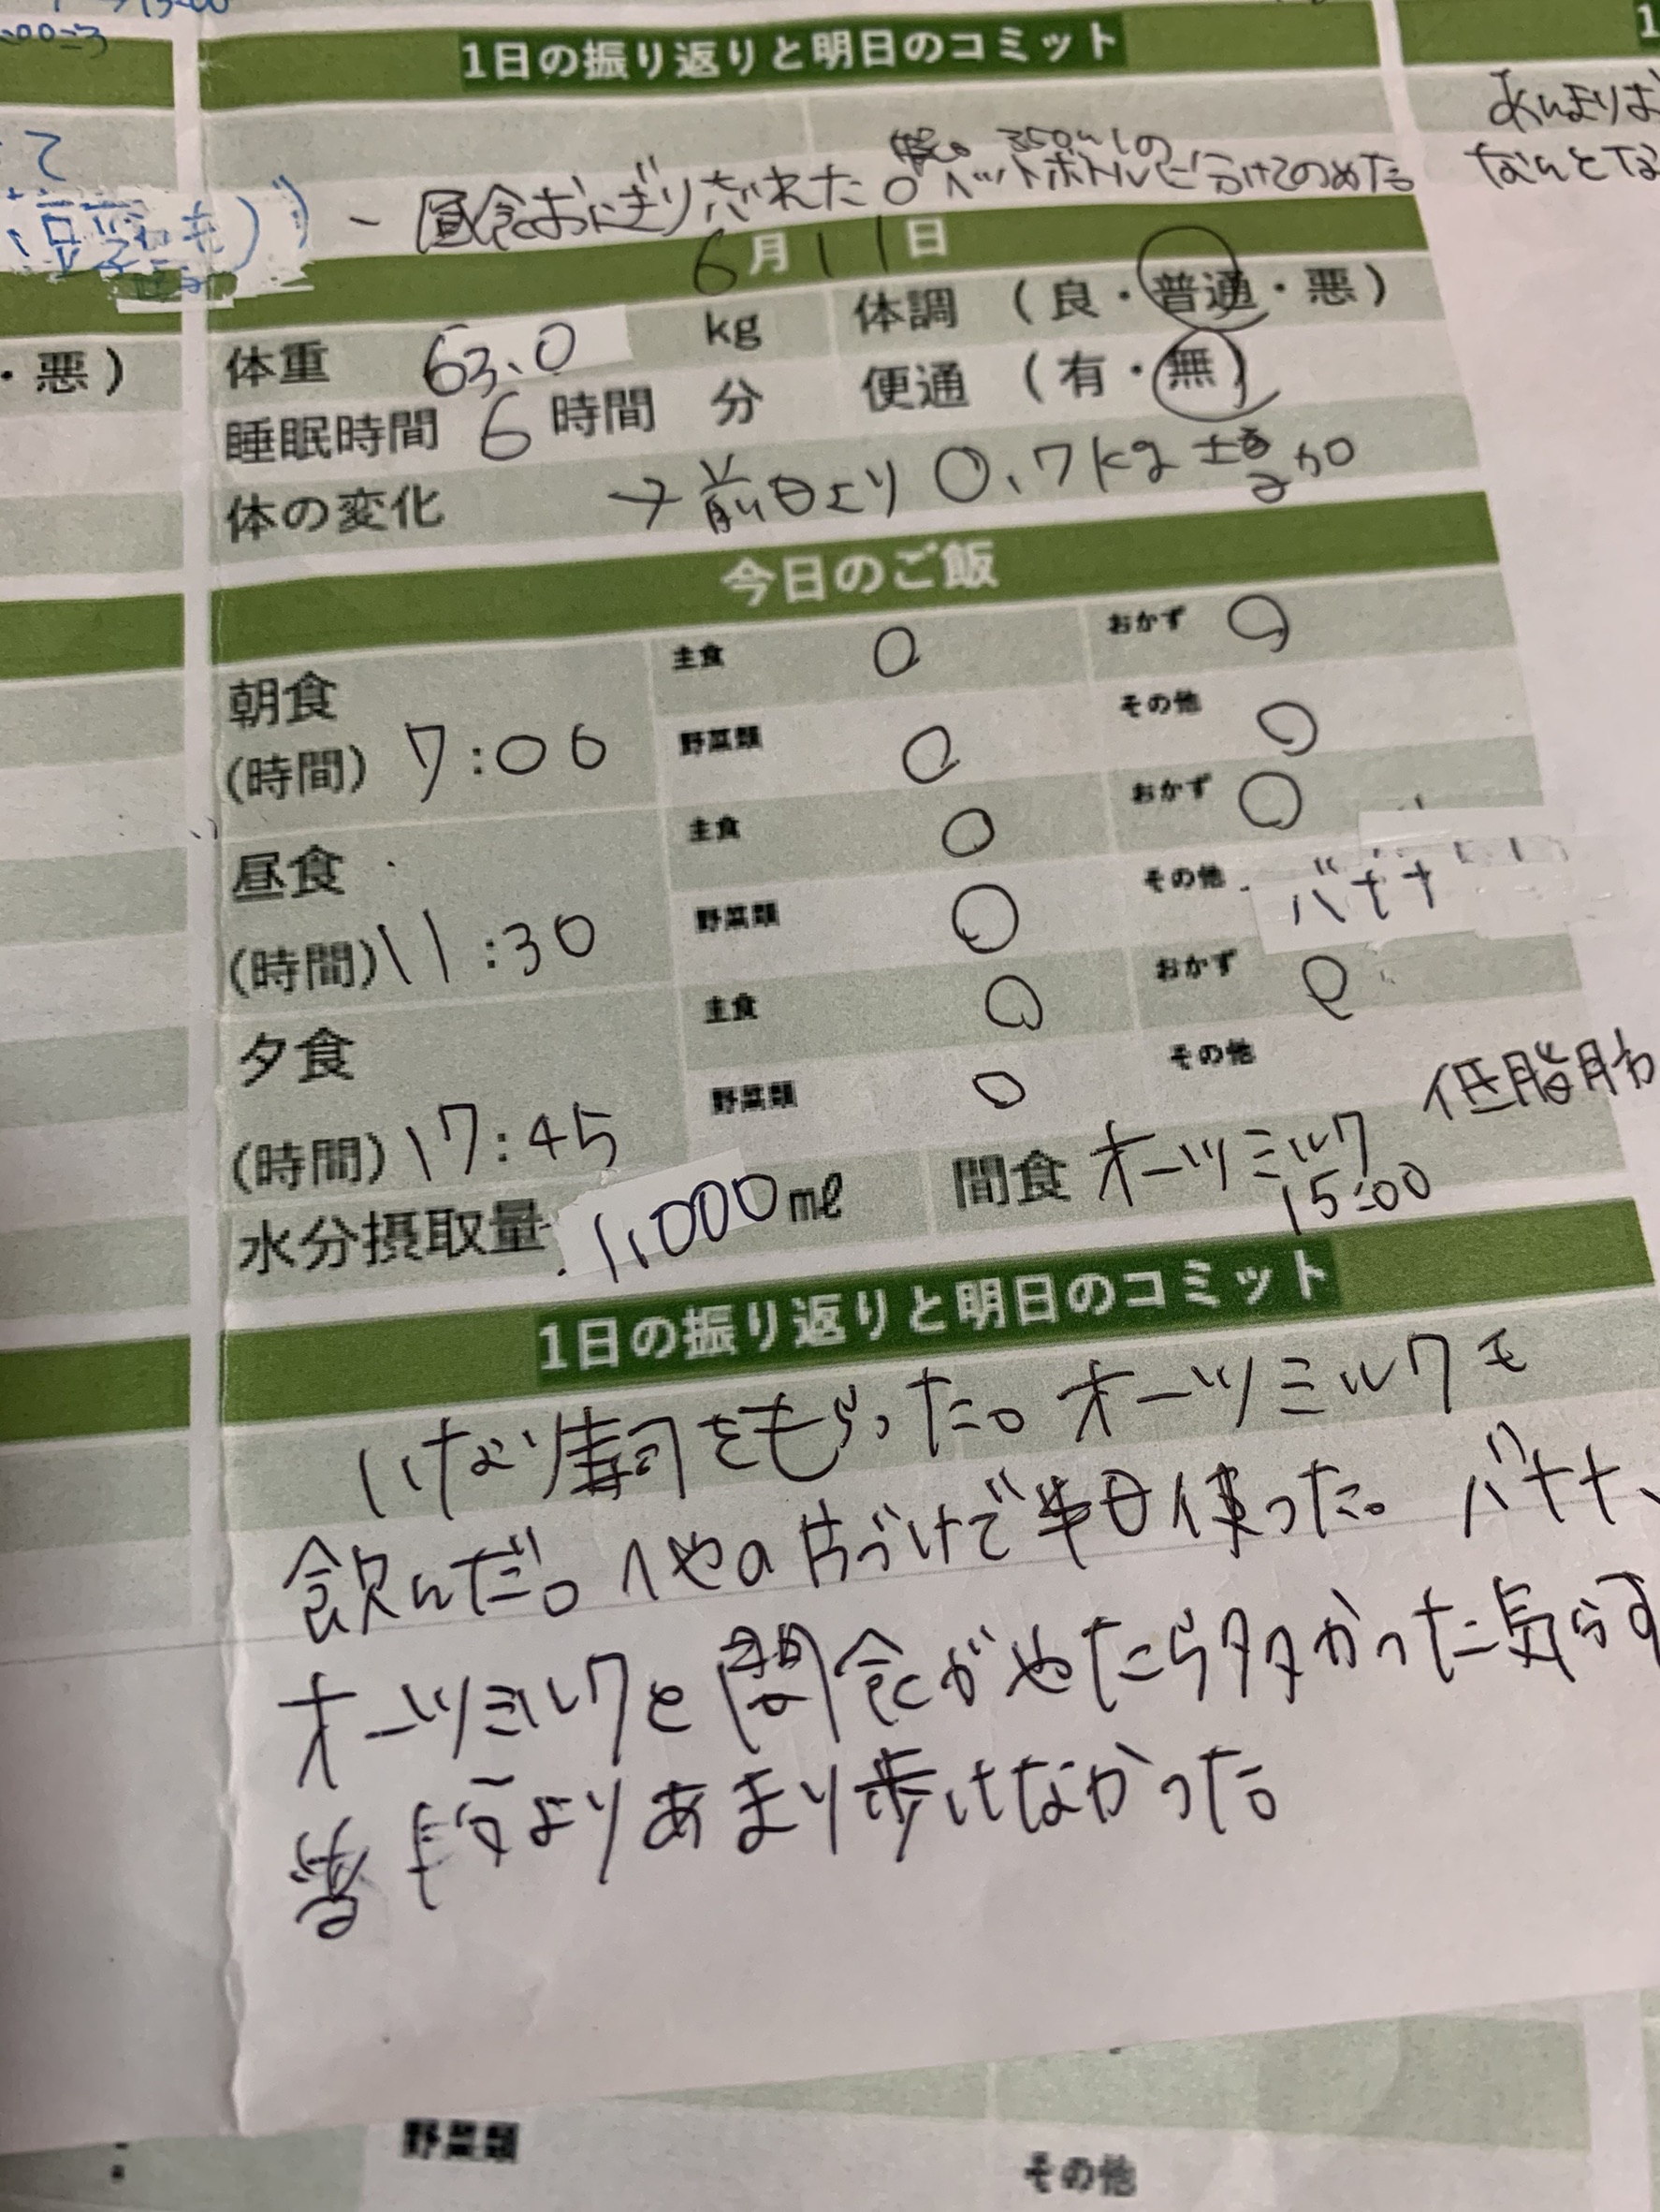 1日の振り返りと明日のコミット
昼食おにぎり
350mlの
ペットボトルに分けてのめた
6月11日
体重 63.0 kg 体調 (良・普通・悪)
睡眠時間 6時間 分 便通 (有・無)
体の変化 →前日より0.7kg増加
今日のご飯
朝食
(時間) 7:00
主食 〇 おかず 〇
野菜類 〇 その他 〇
昼食
(時間) 11:30
主食 〇 おかず 〇
野菜類 〇 その他 バナナ
夕食
(時間) 17:45
主食 〇 おかず 〇
野菜類 〇 その他
低脂肪
水分摂取量 1,000ml 間食 オーツミルク
15:00
1日の振り返りと明日のコミット
いなり寿司をもらった。オーツミルクも
飲んだ。へやの片づけで半日使った。バナナ、
オーツミルクと間食がやたら多かった気がす
普段よりあまり歩けなかった。
・悪)
あんまりお
なんとな
野菜類
その他